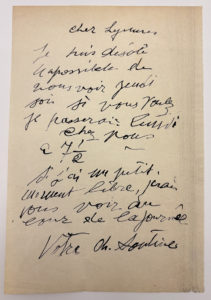 cher Lysères
Je suis désolé
impossible de
vous voir jeudi
soir si vous voulez
je passerai lundi
chez vous
a 7 1/2
Si j'ai un petit
moment libre, j'irai
vous voir au
cour de la journée
Votre Ch. Soutine